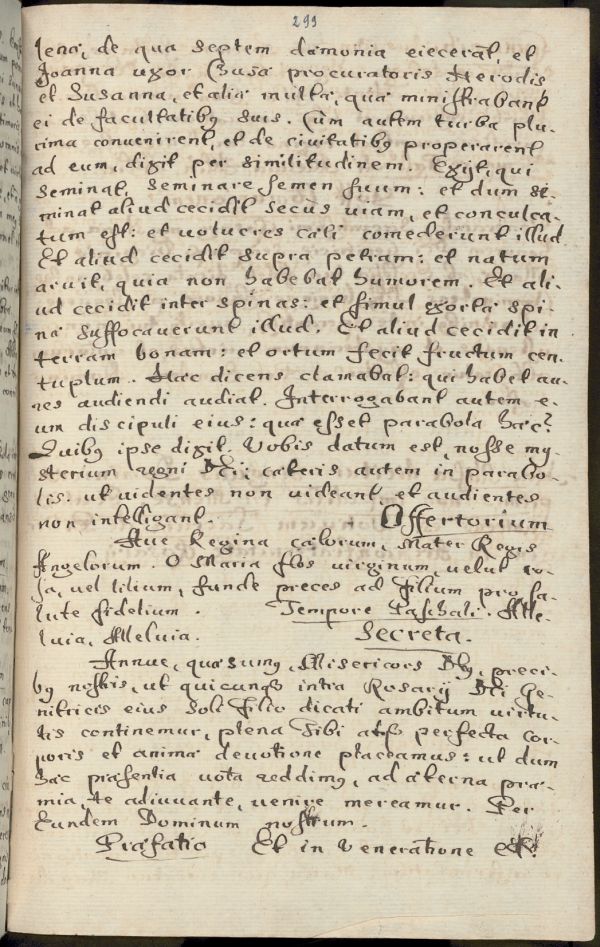 299
lena, de qua septem dæmonia eiecerat, et
Joanna uxor Chusæ procuratoris Herodis
et Susanna, et aliæ multæ, quæ ministrabant
ei de facultatibꝰ suis. Cum autem turba plu-
rima convenirent, et de civitatibꝰ properarent
ad eum, dixit per similitudinem. Exijt, qui
seminat, seminare semen suum: et dum se-
minat aliud cecidit secus uiam, et conculca-
tum est: et uolucres cæli comederunt illud.
Et aliud cecidit supra petram: et natum
aruit, quia non habebat humorem. Et ali-
ud cecidit inter spinas: et simul exortæ spi-
næ suffocauerunt illud. Et aliud cecidit in
terram bonam: et ortum fecit fructum cen-
tuplum. Hæc dicens clamabat: qui habet au-
res audiendi audiat. Interrogabant autem e-
um discipuli eius: quæ esset parabola hæc?
Quibꝰ ipse dixit: Vobis datum est, nosse my-
sterium regni Dei; cæteris autem in parabo-
lis: ut uidentes non uideant, et audientes
non intelligant. Offertorium
Aue Regina cælorum, Mater Regis
Angelorum. O Maria flos uirginum, uelut ro-
sa, uel lilium, funde preces ad Filium pro sa-
lute fidelium. Tempore Paschali. Alle-
luia, Alleluia. Secreta.
Annue, quæsumꝰ, Misericors Dꝰ, preci-
bꝰ nostris, ut quicunqꝫ intra Rosarij Dei Ge-
nitricis eius soli Filio dicati ambitum uirtu-
tis continemur, plena sibi atqꝫ perfecta cor-
poris et animæ deuotione placeamus: ut dum
hæc præsentia uota reddimꝰ, ad æterna præ-
mia, te adiuuante, uenire mereamur. Per
Eundem Dominum nostrum.
Præfatio Et in Veneratione